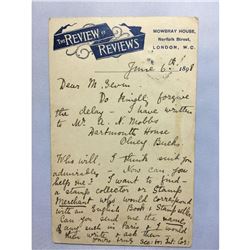 THE REVIEW OF REVIEWS
MOWBRAY HOUSE,
Norfolk Street,
LONDON, W.C.
June 6th 1898
Dear M.
Do kindly forgive
the delay - I have written
to Mr A. N. Mobbs
Dartmouth House
Olney Bucks.
Who will, I think suit you
admirably. Now can you
help me? I want to find
a stamp collector or Stamp
Merchant who would correspond
with an English Book & Stamp seller
Can you send me the name
of any such in Paris & I would
then write & ask them
yours truly Sec: Int: Cor: